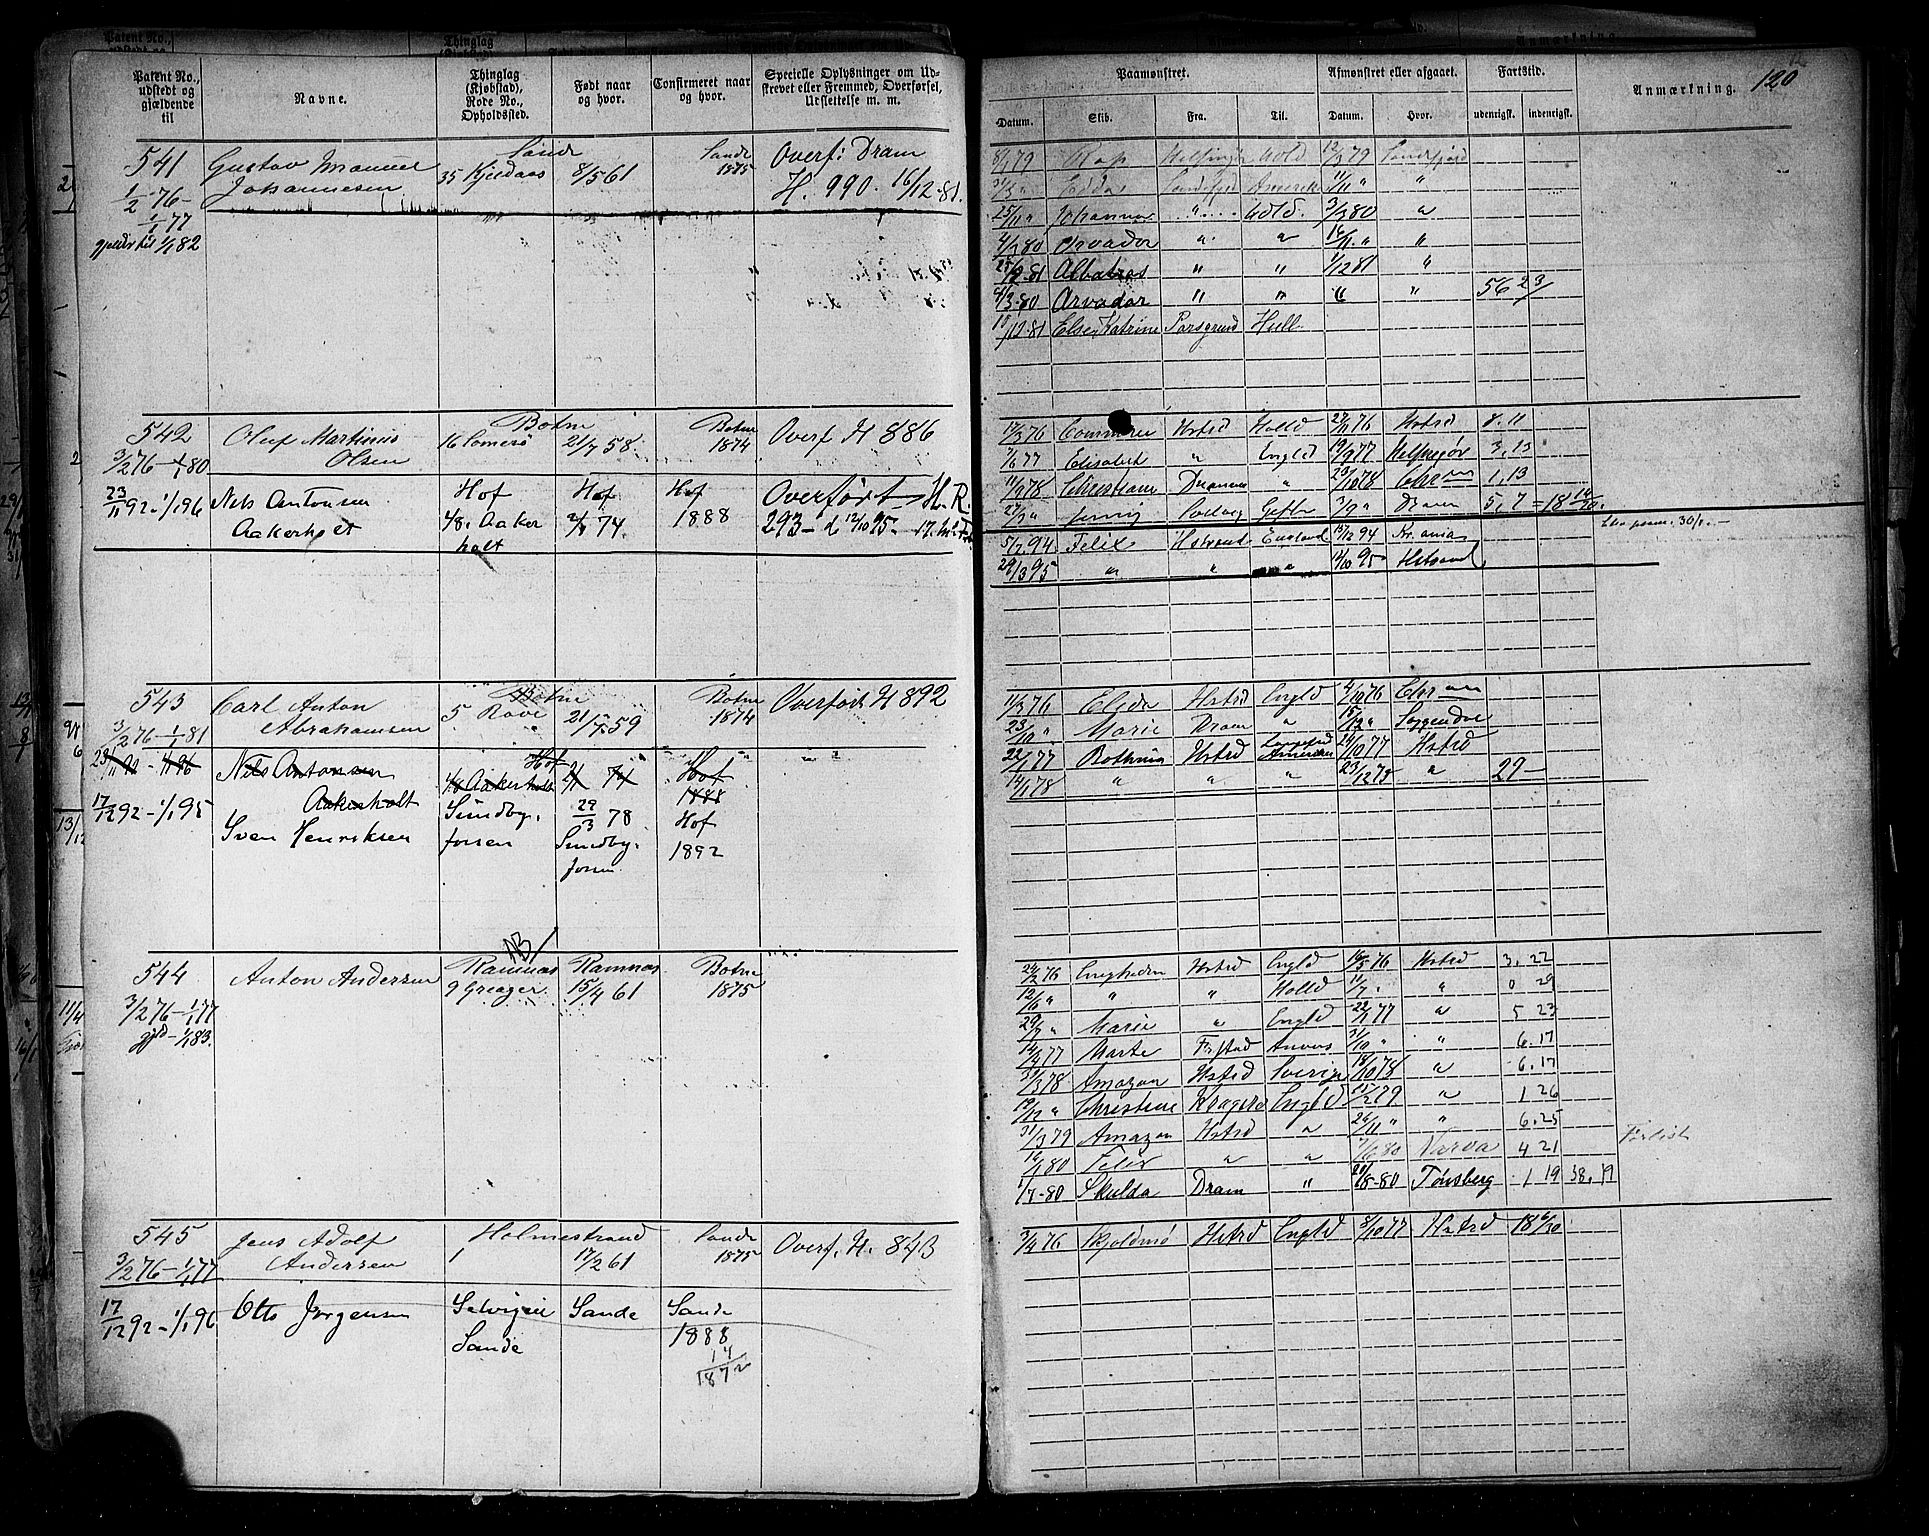 Patent No., udstedt og gjældende til
Navne.
Thinglag (Kjøbstad), Rode No., Opholdssted.
Født naar og hvor.
Confirmeret naar og hvor.
Specielle Oplysninger om Udskrevet eller Fremmed, Overførsel, Udslettelse m. m.
Paamønstret.
Afmønstret eller afgaaet.
Fartstid.
Anmærkning.
120
Datum.
Skib.
Fra.
Til.
Datum.
Hvor.
udenrigsk.
indenrigsk.
541 Gustav Imanuel Sande Sande Overf: Dram
1/2 76- Johannesen 35 Kjeldaas 8/5 61 1875 H. 990. 16/12-81.
1/1 77
gjelder til 1/1 82
12/3 79
31/3 " Edda Amerika 11/11 " "
25/11 " " 3/3 80 "
4/3 80 Arvador " " 14/11 " "
Albatros " " 1/12 81 "
4/3-80 Arvador " " " " 56 23/
10/12-81 Else Katrine Porsgrund Hull
542 Oluf Martinius Botne Botne Overf H 886
3/2 76 - 1/1 80 Olsen 16 21/7 58. 1874
17/3 76 Hstrd Holld 27/11 76 Hstrd 8.11
7/6 77 Elisabet " Engld 19/9 77 Helsingør 3.13
11/9 78 Christiane Drammen " 23/10 78 Chran 1,13
27/3 " Gefle 3/9 " Dram 5,7 = 18 14/30.
23/11 92 - 1/1 96 Nils Antonsen Hof Hof Hof Overført H. R.
Aakerholt 48. Aaker 2/1 74. 1888 293 - d 12/10 95 -
holt
5/2 94. Felix Hstrand England 15/12 94 Kr.ania
29/3 95 " " " 14/10 95 Hstrand
543 Carl Anton Botne Botne Overført H 892
3/2 76 - 1/1 81 Abrahamsen 5 Rove 21/7 59 1874
11/3 76 Elida Hstrd Engld 4/10 76 Chran
23/10 " Marie Dram " 15/12 "
22/1 77 Bothnia Hstrd 24/10 77 Hstrd
14/1 78 " " " 23/12 79 " 27 -
23/11 91 - 1/1 96 Nils Antonsen Hof 2/1 74 Hof
Aakerholt 48 Aakerholt 1888
17/12 92 - 1/1 95 Sven Henriksen Sundby. 29/3 78 Hof
fossen Sundby. 1892
fossen
NB/
544 Anton Andersen Ramnæs Ramnæs Botne
3/2 76 - 1/1 77 9 Greager. 15/4 61 1875
gjld - 1/1 83.
24/2 76 Enigheden Hstrd Engld 16/5 76 Hstrd 3.22
12/6 " " " Holld 11/7 . " 0 29
29/7 " Marie " Engld 22/1 77 " 5 23
14/4 77 Marte Anvers 31/10 " " 6.17
31/3 78 Amazon Hstrd Sverige 18/10 78 " 6.17
19/12 " Christine Kragerø Engld " 1 26
31/3 79 Amazon Hstrd " 26/11 " " 6.25
16/1 80 Felix " " 7/6 80 Narva 4 21 Forlist
1/7-80 Skulda Dram " 20/8-80 Tønsberg 1 19 38.19
545 Jens Adolf Holmestrand Sande Overf. H. 843
3/2 76 - 1/1 77 Andersen 1 17/2 61 1875
3/4 76 Skjoldmø Hstrd Engld 8/10 77 Hstrd 18 6/30
17/12 92 - 1/1 96 Otto Jørgensen Selvigen Sande Sande
Sande 1888
14/1872